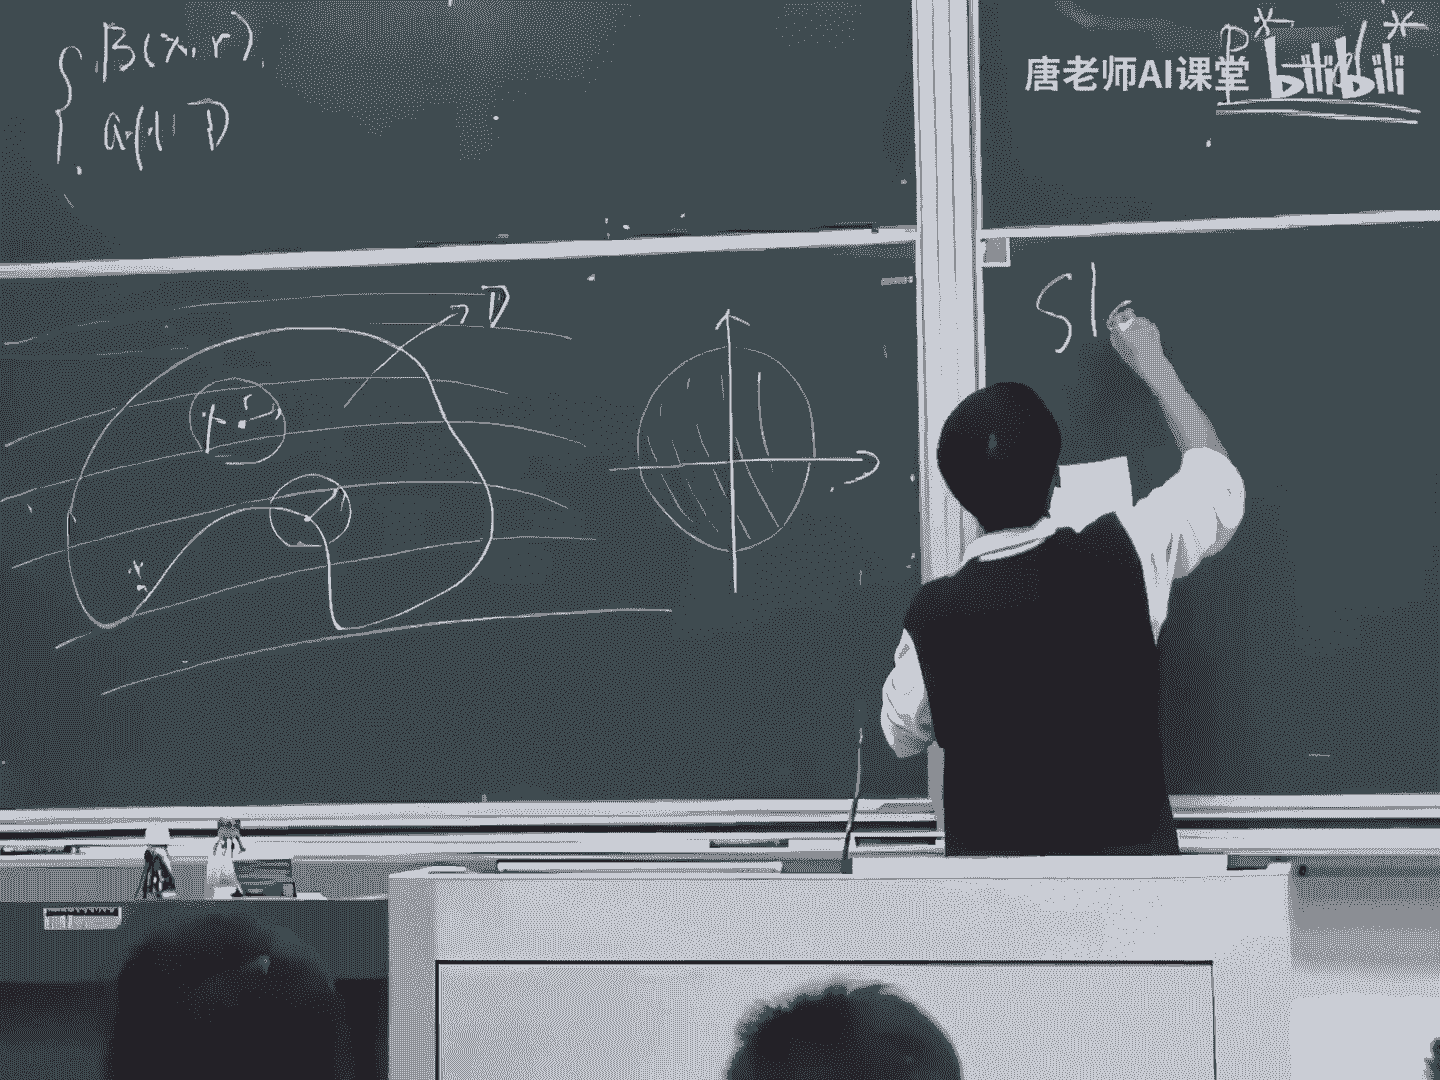 B(x, r)
aff D
唐老师AI课堂 bilibili
P* d*
D
x r
x
Sl